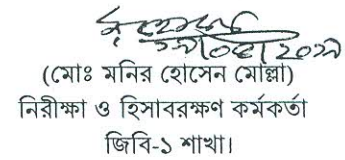 (মোঃ মনির হোসেন মোল্লা)
নিরীক্ষা ও হিসাবরক্ষণ কর্মকর্তা
জিবি-১ শাখা।